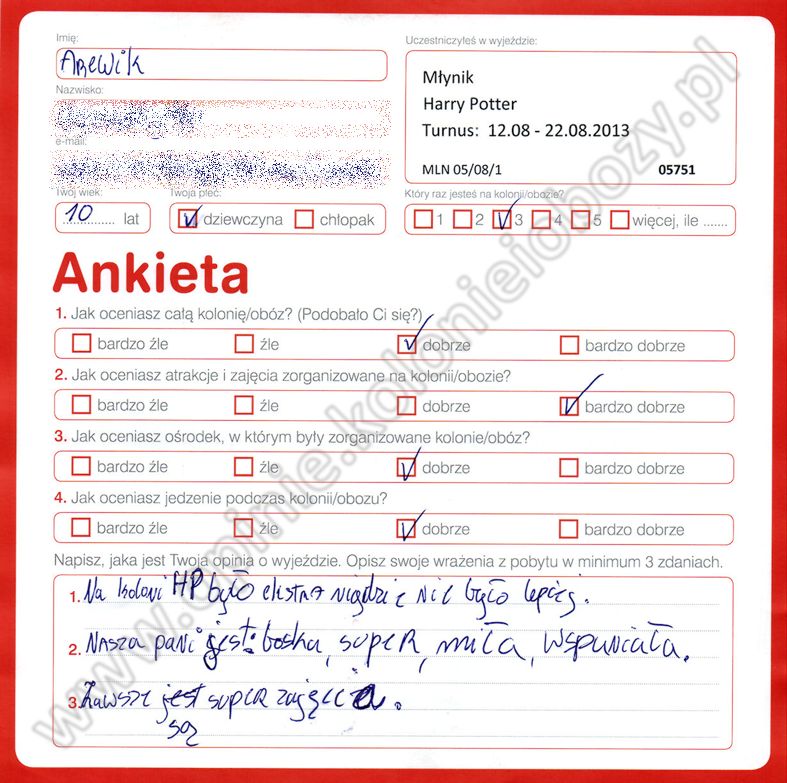 Imię:
Arewik
Uczestniczyłeś w wyjeździe:
Młynik
Harry Potter
Turnus: 12.08 - 22.08.2013
MLN 05/08/1 05751
Nazwisko:
e-mail:
Twój wiek:
10 lat
Twoja płeć:
dziewczyna chłopak
Który raz jesteś na kolonii/obozie?
1 2 3 4 5 więcej, ile .......
Ankieta
1. Jak oceniasz całą kolonię/obóz? (Podobało Ci się?)
bardzo źle źle dobrze bardzo dobrze
2. Jak oceniasz atrakcje i zajęcia zorganizowane na kolonii/obozie?
bardzo źle źle dobrze bardzo dobrze
3. Jak oceniasz ośrodek, w którym były zorganizowane kolonie/obóz?
bardzo źle źle dobrze bardzo dobrze
4. Jak oceniasz jedzenie podczas kolonii/obozu?
bardzo źle źle dobrze bardzo dobrze
Napisz, jaka jest Twoja opinia o wyjeździe. Opisz swoje wrażenia z pobytu w minimum 3 zdaniach.
1. Na koloni HP było ekstra nigdzie nic było lepiej.
2. Nasza pani jest: boska, super, miła, wspaniała.
3. Zawsze jest super zajęcia.
są
www.opinie.kolonieiobozy.pl